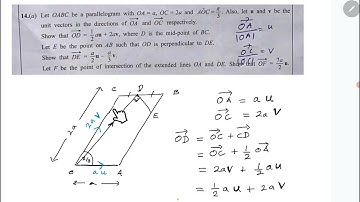 14.(a) Let OABC be a parallelogram with OA = a, OC = 2a and AÔC = π/3. Also, let u and v be the
unit vectors in the directions of →OA and →OC respectively.
Show that →OD = 1/2 au + 2av, where D is the mid-point of BC.
Let E be the point on AB such that OD is perpendicular to DE.
Show that →DE =
Let F be the point of intersection of the extended lines OA and DE. Show that →OF =
→OA / |OA| = u
→OC / |OC| = V
C D B
E
2a
2a V
π/3
O a u A
← a →
→OA = a u
→OC = 2a V
→OD = →OC + →CD
= →OC + 1/2 →OA
= 2av + 1/2 au
= 1/2 au + 2av